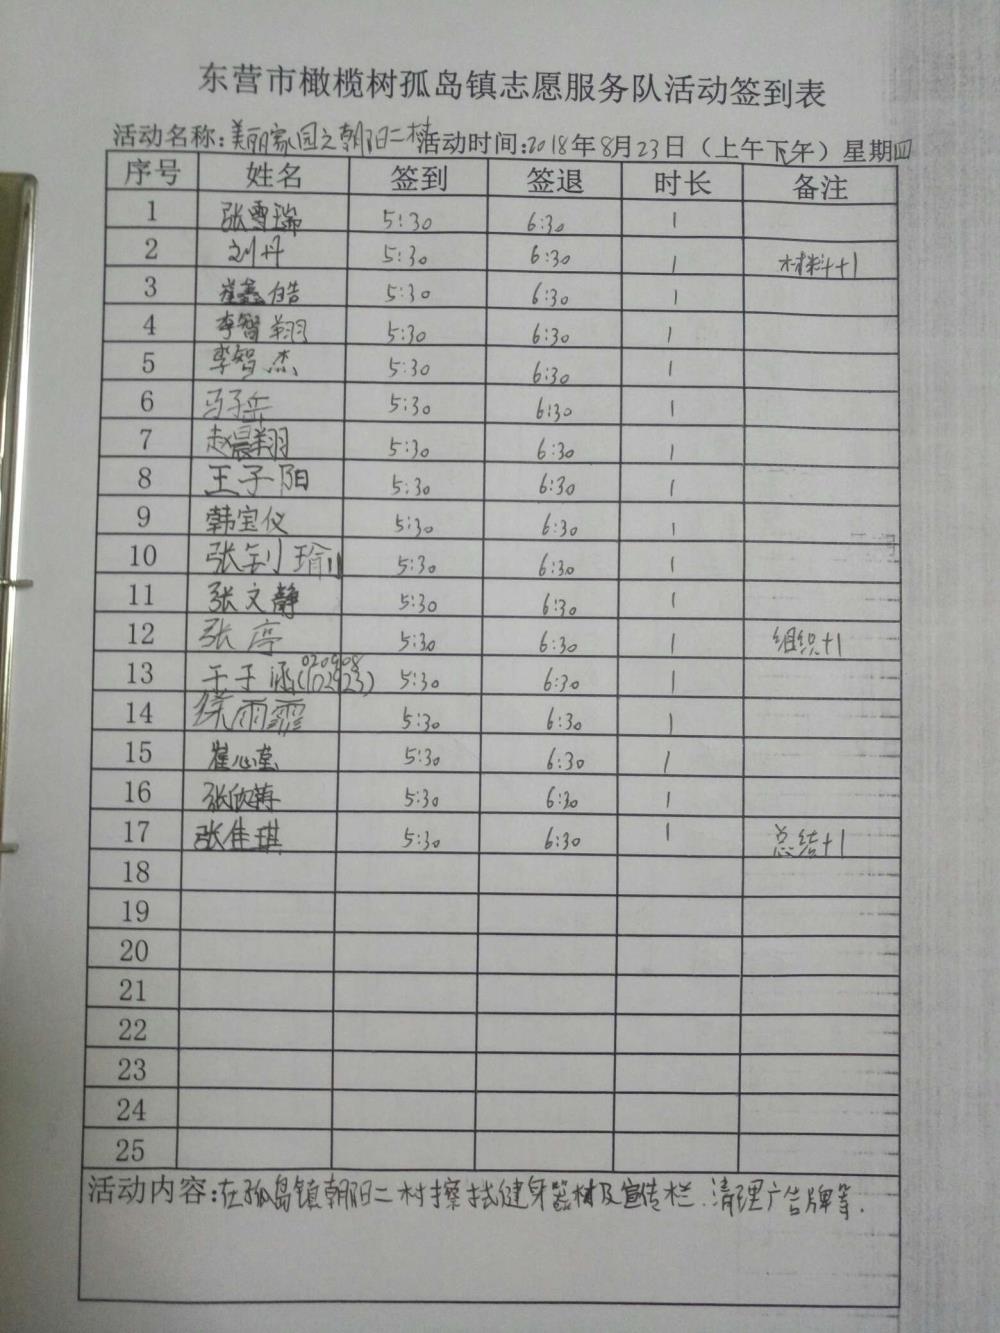 东营市橄榄树孤岛镇志愿服务队活动签到表
活动名称:美丽家园之朝阳二村 活动时间:2018年8月23日（上午下午）星期四
序号 姓名 签到 签退 时长 备注
1 张雪瑞 5:30 6:30 1
2 刘丹 5:30 6:30 1 材料+1
3 崔鑫皓 5:30 6:30 1
4 李智翔 5:30 6:30 1
5 李智杰 5:30 6:30 1
6 马子岳 5:30 6:30 1
7 赵晨翔 5:30 6:30 1
8 王子阳 5:30 6:30 1
9 韩宝仪 5:30 6:30 1
10 张钊瑜 5:30 6:30 1
11 张文静 5:30 6:30 1
12 张亭 5:30 6:30 1 组织+1
13 于子涵 5:30 6:30 1
14 雨霏 5:30 6:30 1
15 崔心莹 5:30 6:30 1
16 张欣 5:30 6:30 1
17 张佳琪 5:30 6:30 1 总结+1
18
19
20
21
22
23
24
25
活动内容:在孤岛镇朝阳二村擦拭健身器材及宣传栏、清理广告牌等.